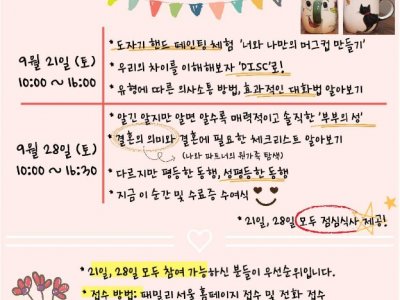 9월 21일 (토)
10:00 ~ 16:00
* 도자기 핸드 페인팅 체험 '너와 나만의 머그컵 만들기'
* 우리의 차이를 이해해보자 'DISC'로!
* 유형에 따른 의사소통 방법, 효과적인 대화법 알아보기
9월 28일 (토)
10:00 ~ 16:30
* 알긴 알지만 알면 알수록 매력적이고 솔직한 '부부의 성'
* 결혼의 의미와 결혼에 필요한 체크리스트 알아보기
(나와 파트너의 원가족 탐색)
* 다르지만 평등한 동행, 성평등한 동행
* 지금 이 순간 및 수료증 수여식
* 21일, 28일 모두 점심식사 제공!
* 21일, 28일 모두 참여 가능하신 분들이 우선순위입니다.
* 접수 방법: 패밀리 서울 홈페이지 접수 및 전화 접수